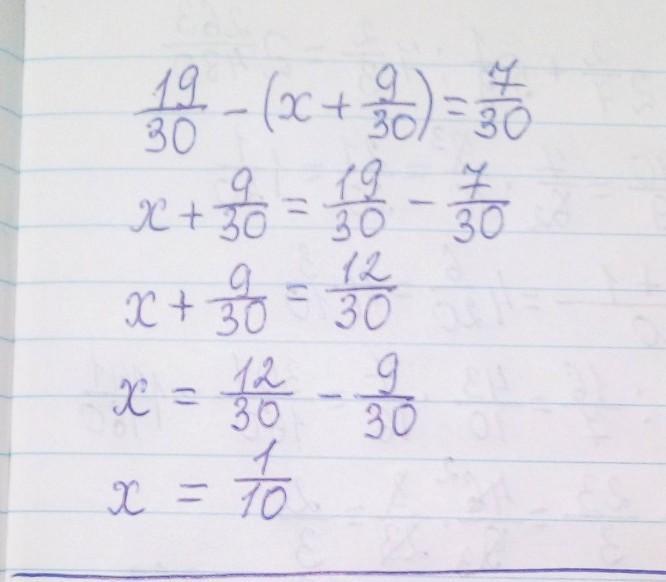 19/30 - (x + 9/30) = 7/30
x + 9/30 = 19/30 - 7/30
x + 9/30 = 12/30
x = 12/30 - 9/30
x = 1/10